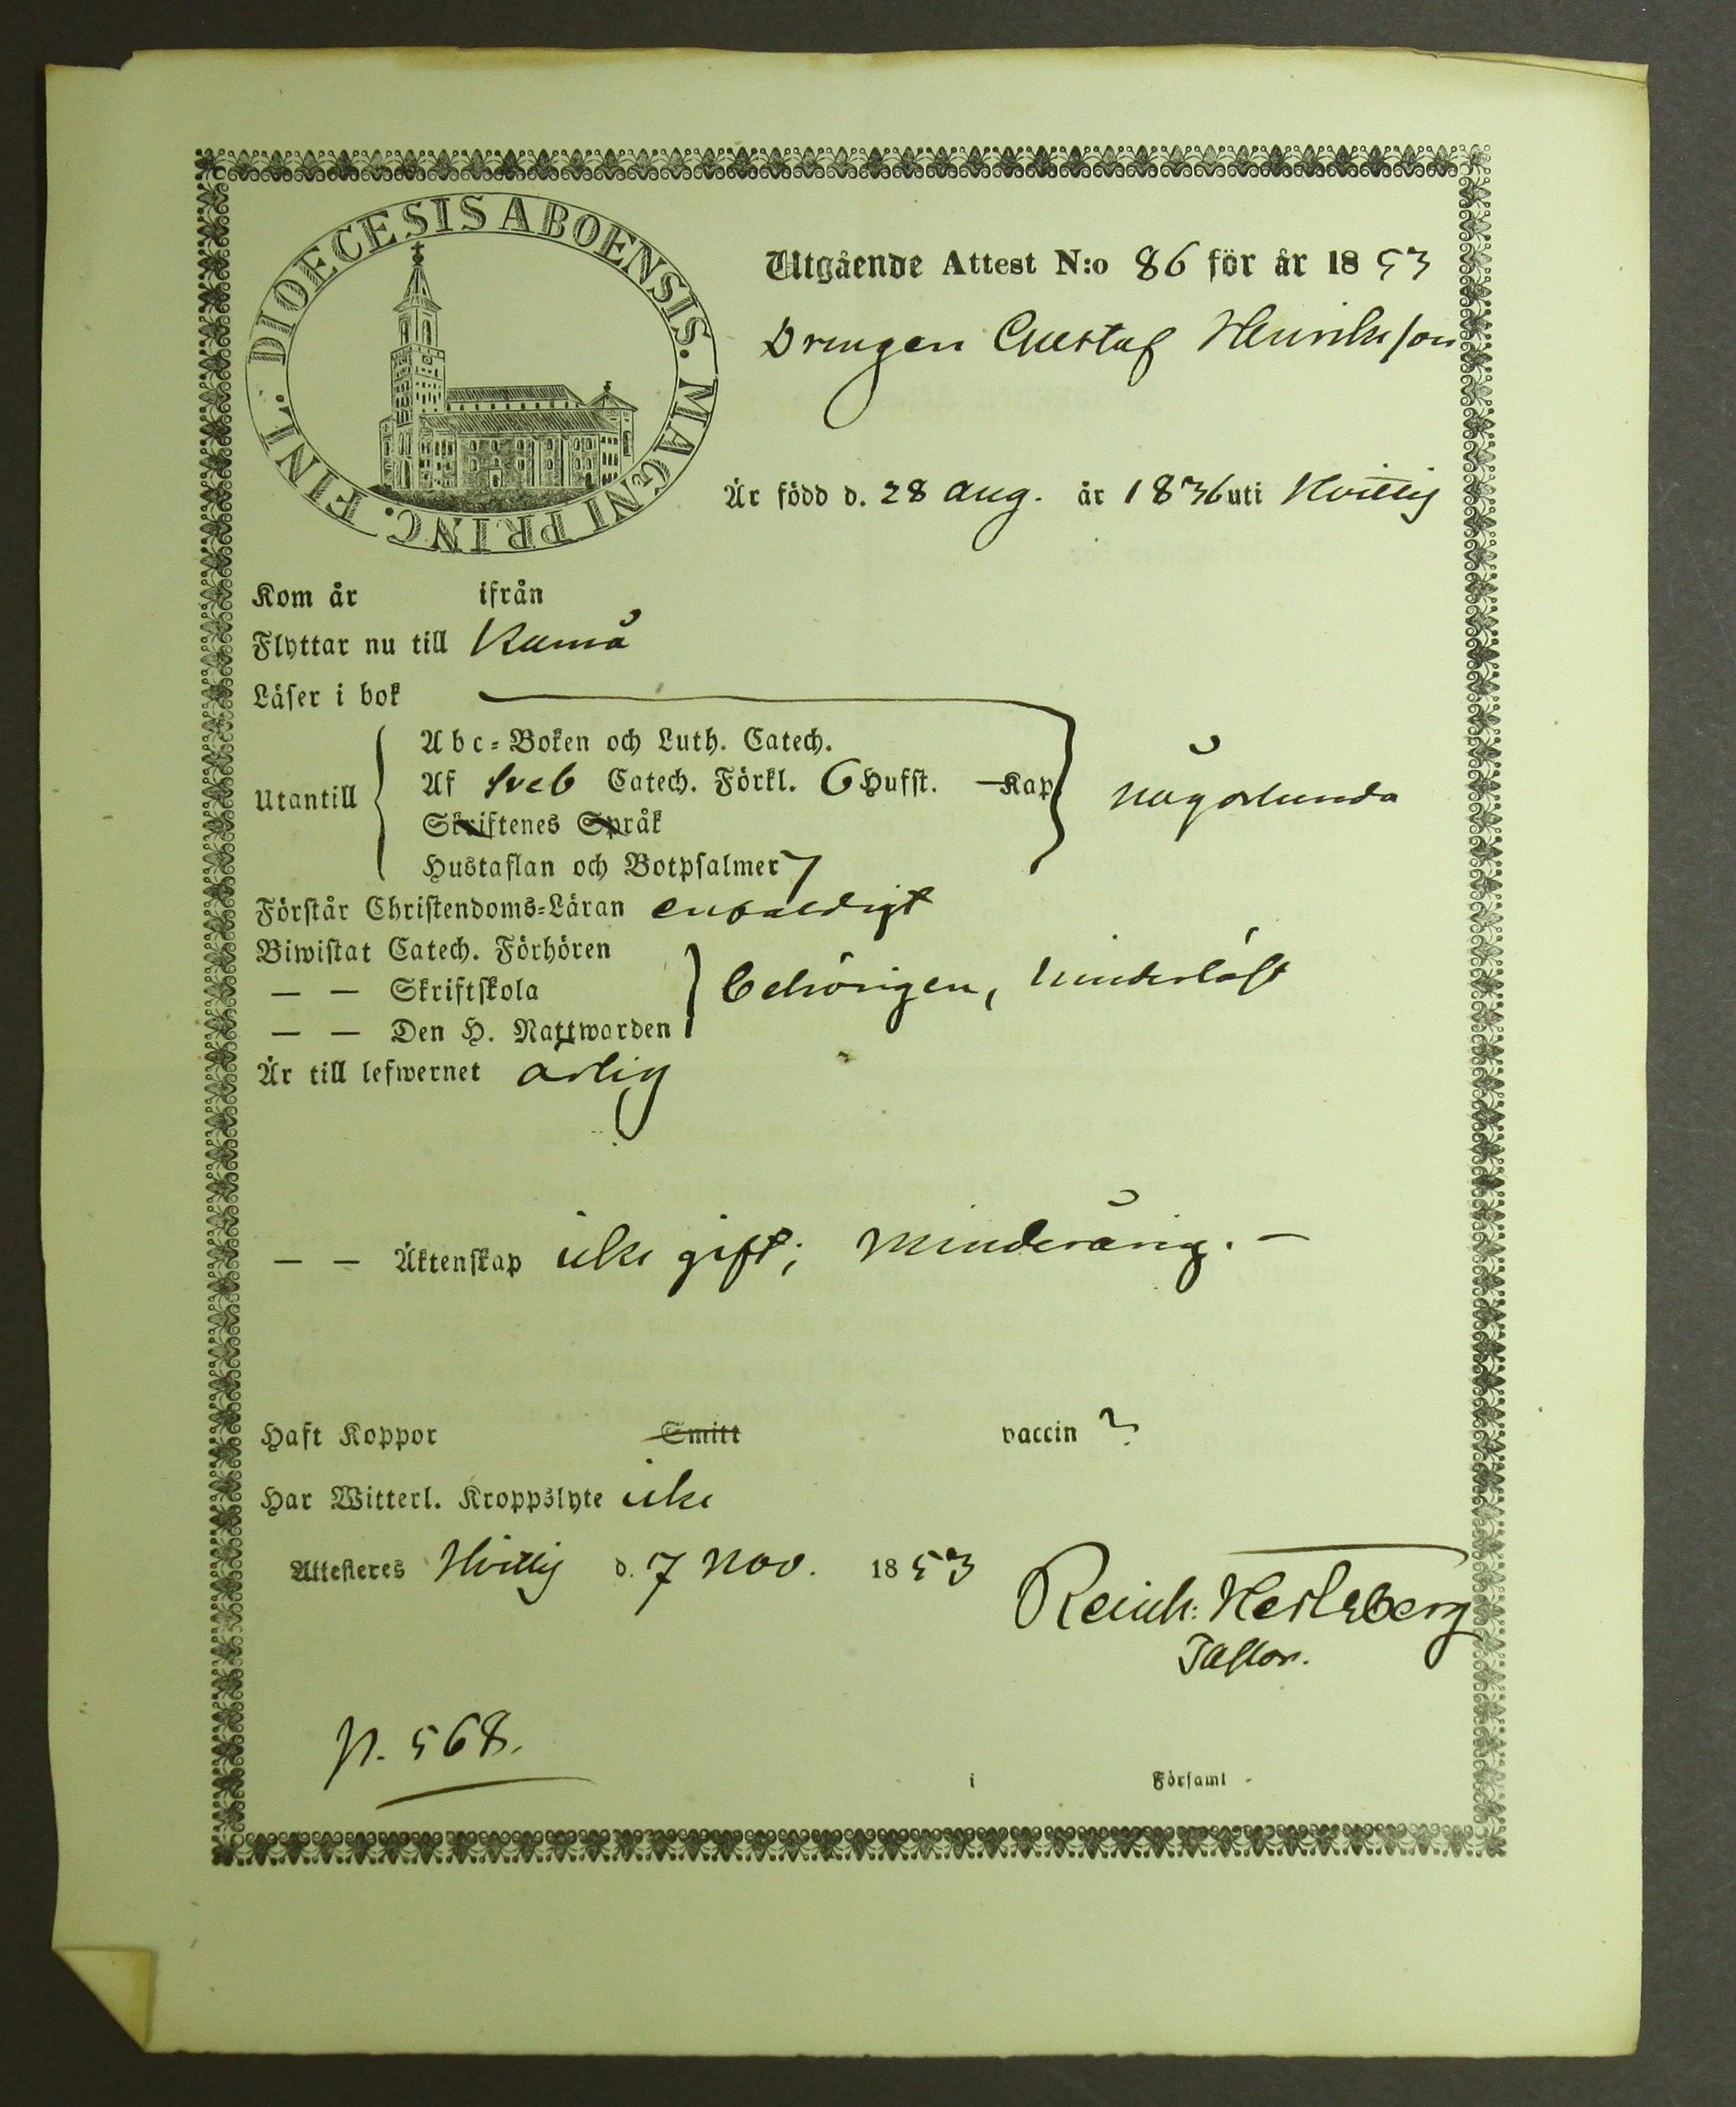 DIOECESIS ABOENSIS. MAGNI PRINC. FINL.
Utgående Attest N:o 86 för år 1853
Drengen Gustaf Henriksson
Är född d. 28 Aug. år 1836 uti Hvittis
Kom år ifrån
Flyttar nu till Kumå
Läser i bok
Utantill
Abc-Boken och Luth. Catech.
Af Sveb Catech. Förkl. 6 Hufst. — Kap
Skriftenes Språk
Hustaflan och Botpsalmer 7
någorlunda
Förstår Christendoms-Läran enfaldigt
Biwistat Catech. Förhören
— — Skriftskola
— — Den H. Nattwarden
behörigen, hinderlöst
Är till lefwernet ärlig
— — Äktenskap icke gift; minderårig. —
Haft Koppor Smitt vaccin ?
Har Witterl. Kroppslyte icke
Attesteres Hvittis d. 7 Nov. 1853
Reinh: Hertzberg
Pastor.
p. 568.
i Församl -